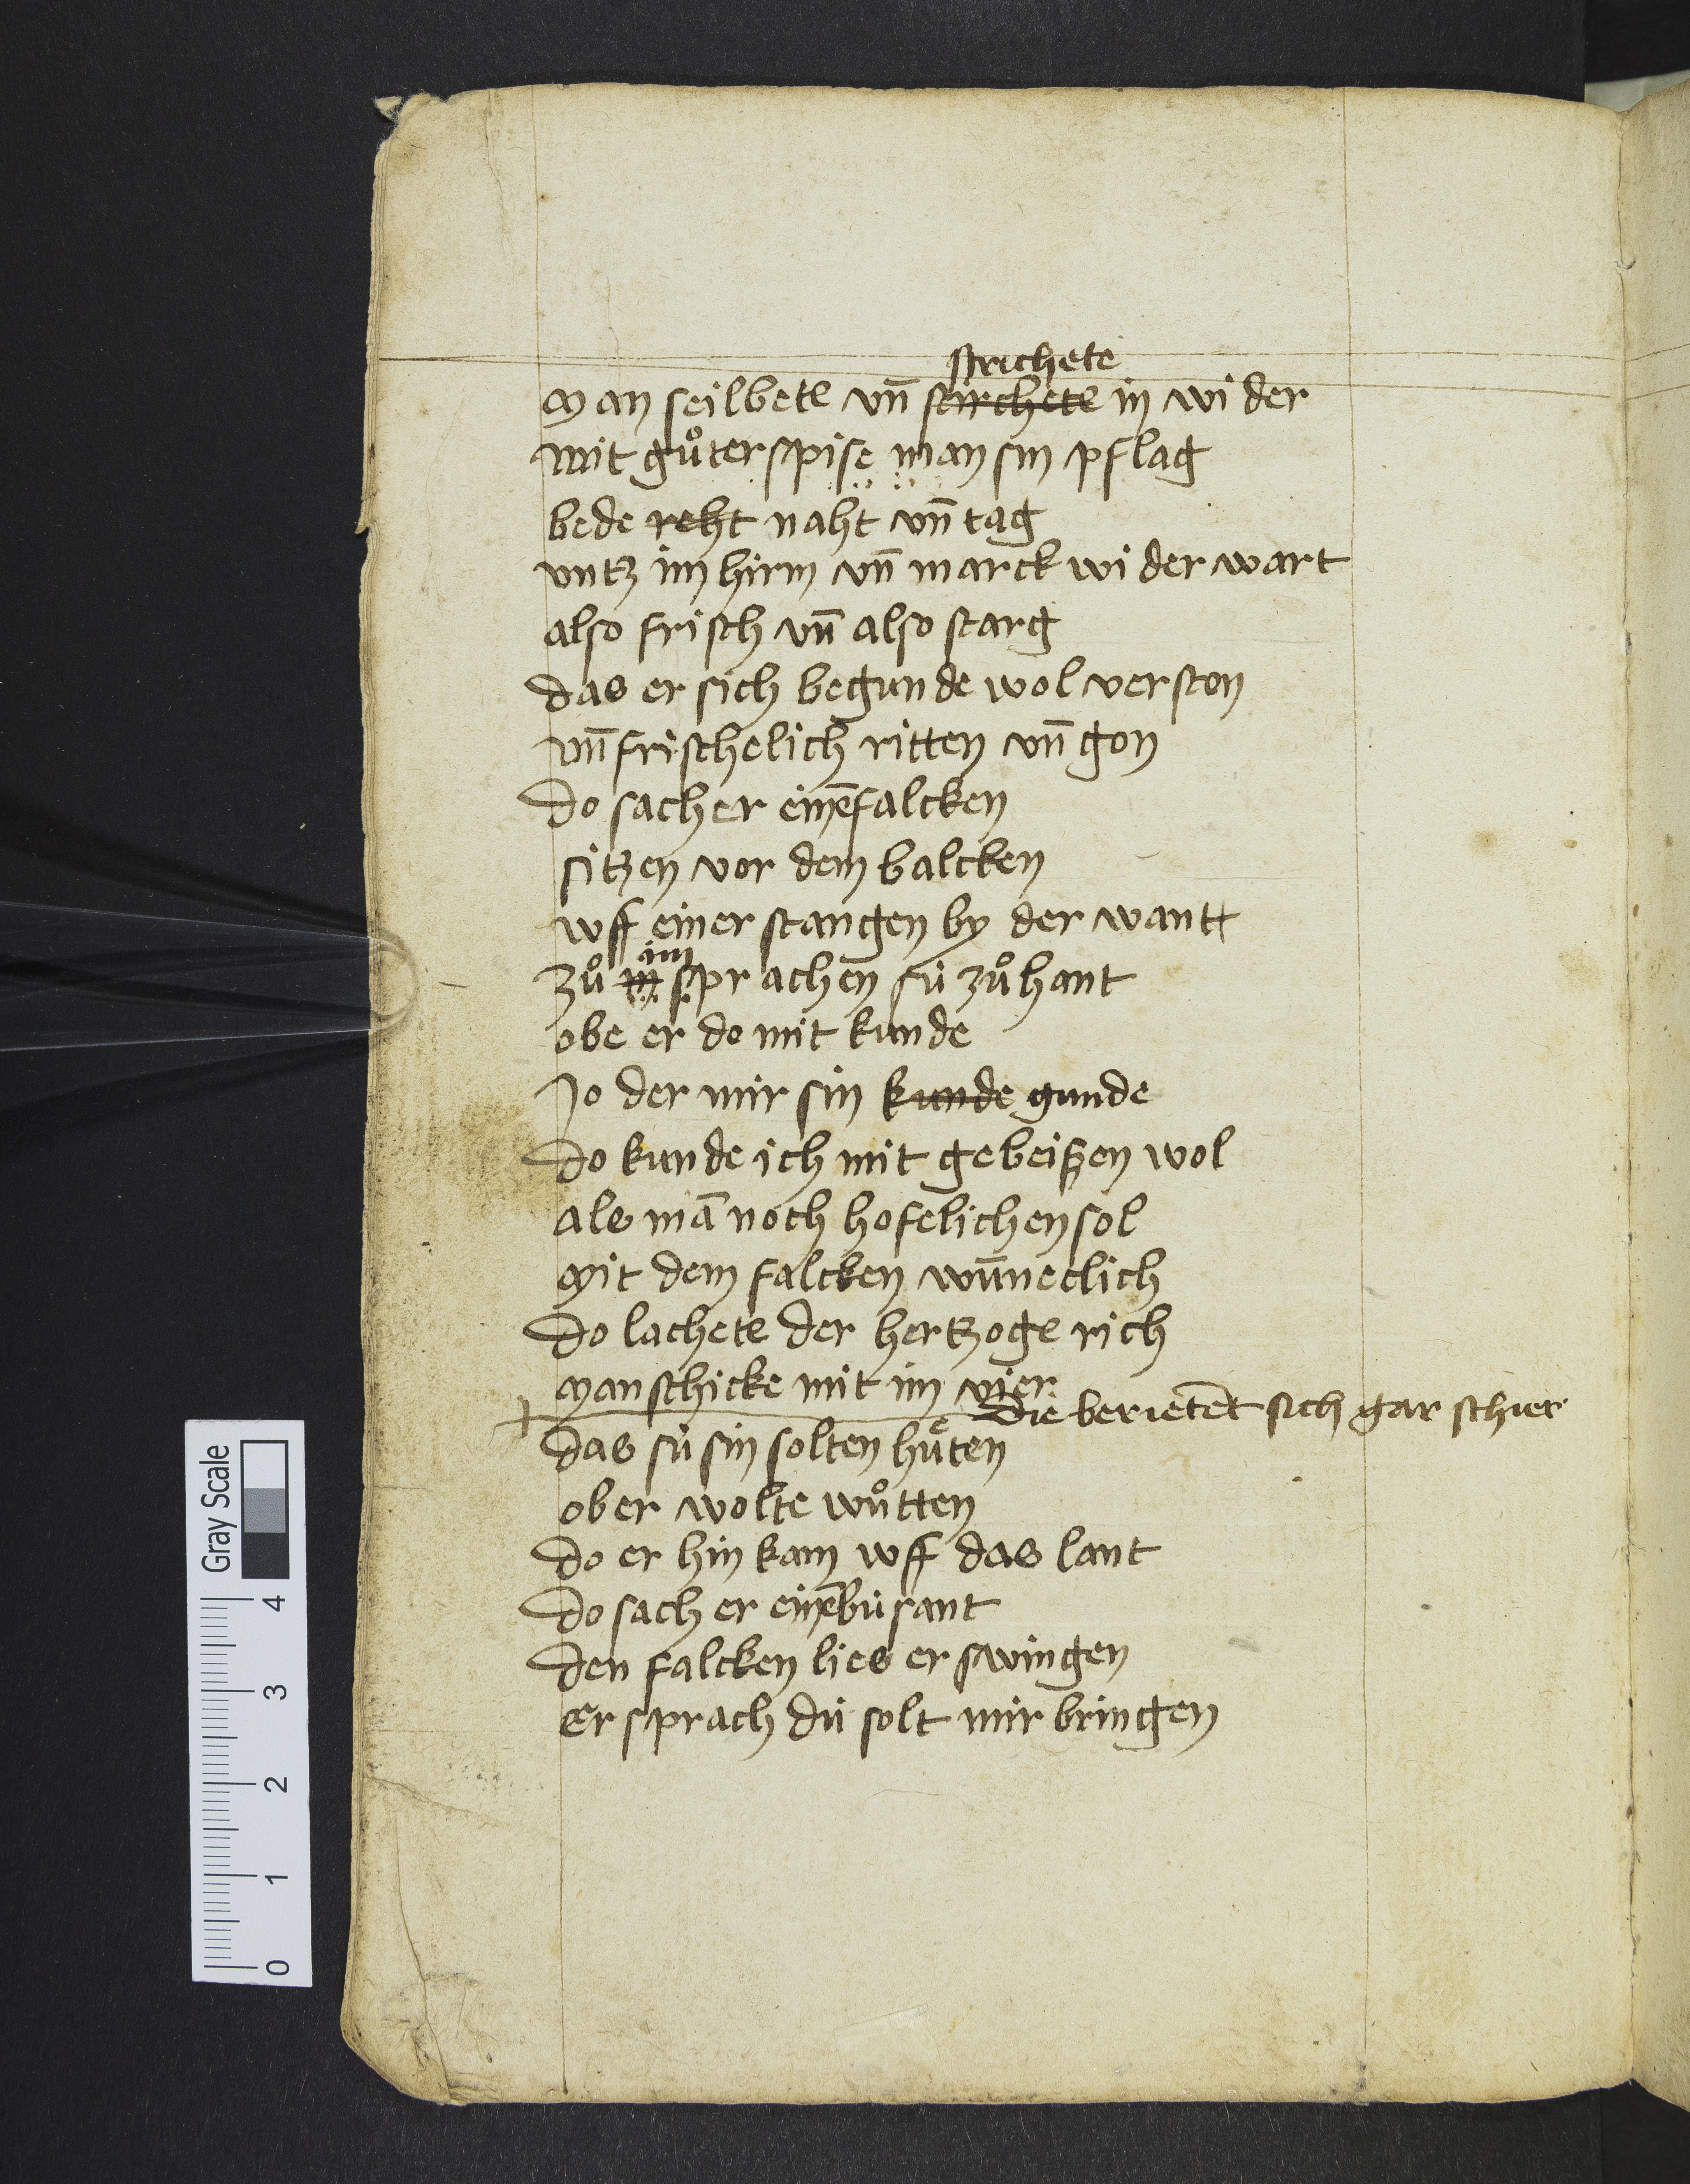 strichete
Man seilbete vn̄ stirchete in wider
mit gůter spise man sin pflag
bede reht naht vn̄ tag
vntz im hirin vn̄ marck wider wart
also frisch vn̄ also starg
das er sich begunde wol verston
vn̄ frischelich ritten vn̄ gon
Do sach er einē falcken
sitzen vor dem balcken
vff einer stangen by der wantt
im
zů in sprachen sü zůhant
obe er do mit kunde
Jo der mir sin kunde gunde
Do kunde ich mit gebeißen wol
als mā noch hofelichen sol
Mit dem falcken wūneclich
Do lachete der hertzoge rich
Man schicke mit im vier
die berietēt sich gar schier
das sü sin solten hüͤten
ob er wolte wůtten
do er hin kam vff das lant
Do sach er einē busant
den falcken lies er swingen
Er sprach du solt mir bringen
Gray Scale
4
3
2
1
0